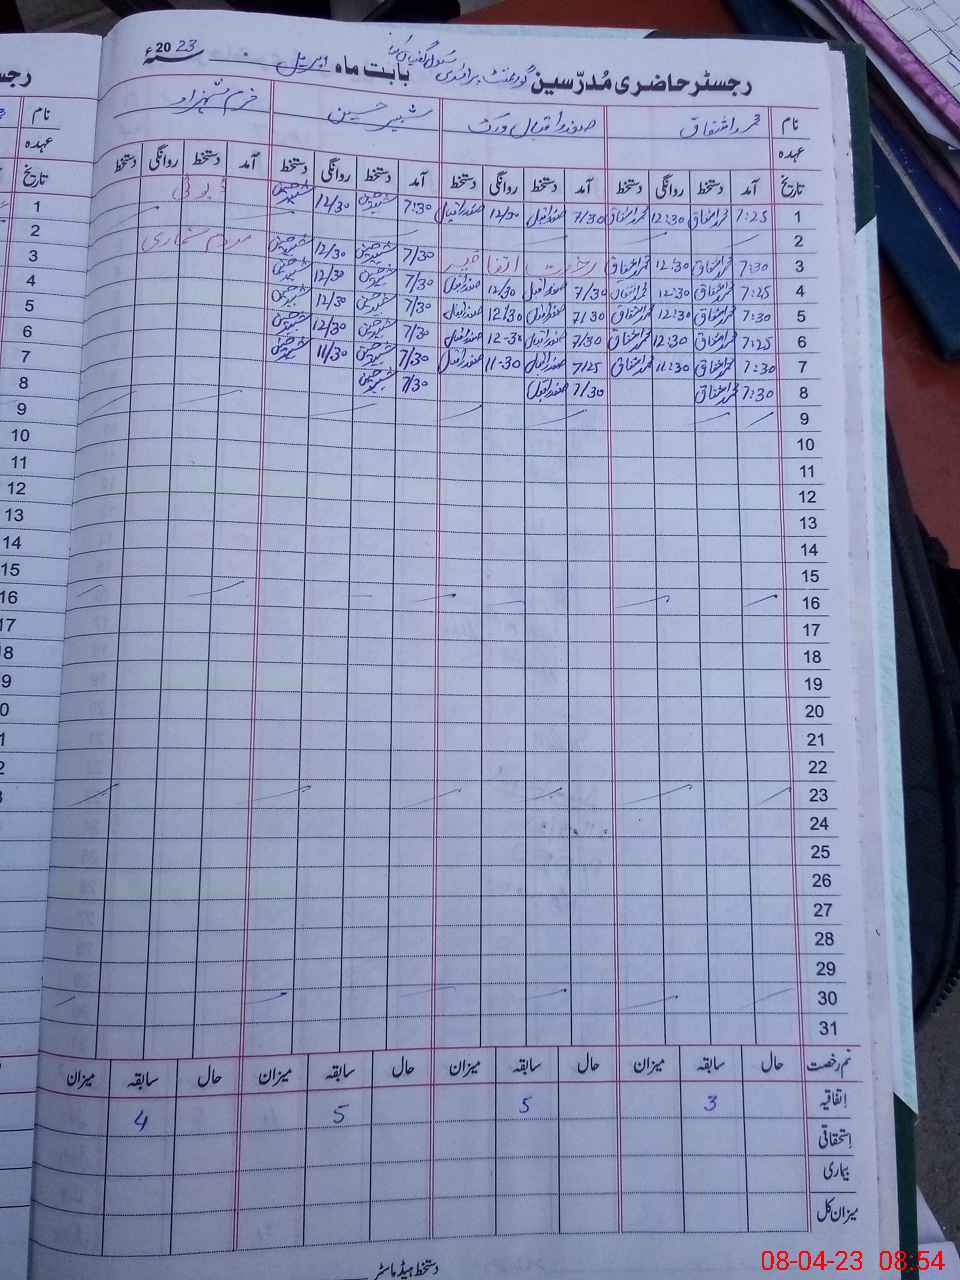 رجسٹر حاضری مُدرّسین گورنمنٹ پرائمری سکول بابت ماہ اپریل 2023 سنہء
نام محمد اشتفاق صفدر اقبال ورک شبیر حسین خرم شہزاد
عہدہ
تاریخ آمد دستخط روانگی دستخط آمد دستخط روانگی دستخط آمد دستخط روانگی دستخط آمد دستخط روانگی دستخط
1 7:25 محمد اشفاق 12:30 محمد اشفاق 7/30 صفدر اقبال 12/30 صفدر اقبال 7:30 شبیر حسین 12/30 شبیر حسین ڈیوٹی
2
3 7:30 محمد اشفاق 12:30 محمد اشفاق رخصت اتفاقیہ 7/30 شبیر حسین 12/30 شبیر حسین مردم شماری
4 7:25 محمد اشفاق 12:30 محمد اشفاق 7/30 صفدر اقبال 12/30 صفدر اقبال 7/30 شبیر حسین 12/30 شبیر حسین
5 7:30 محمد اشفاق 12:30 محمد اشفاق 7/30 صفدر اقبال 12/30 صفدر اقبال 7/30 شبیر حسین 12/30 شبیر حسین
6 7:25 محمد اشفاق 12:30 محمد اشفاق 7/30 صفدر اقبال 12-30 صفدر اقبال 7/30 شبیر حسین 12/30 شبیر حسین
7 7:30 محمد اشفاق 11:30 محمد اشفاق 7/25 صفدر اقبال 11-30 صفدر اقبال 7/30 شبیر حسین 11/30 شبیر حسین
8 7:30 محمد اشفاق 7/30 صفدر اقبال 7/30 شبیر حسین
9
10
11
12
13
14
15
16
17
18
19
20
21
22
23
24
25
26
27
28
29
30
31
نم رخصت حال سابقہ میزان حال سابقہ میزان حال سابقہ میزان حال سابقہ میزان
اِتفاقیہ 3 5 5 4
اِستحقاقی
بیماری
میزان کل
دستخط ہیڈ ماسٹر
08-04-23 08:54